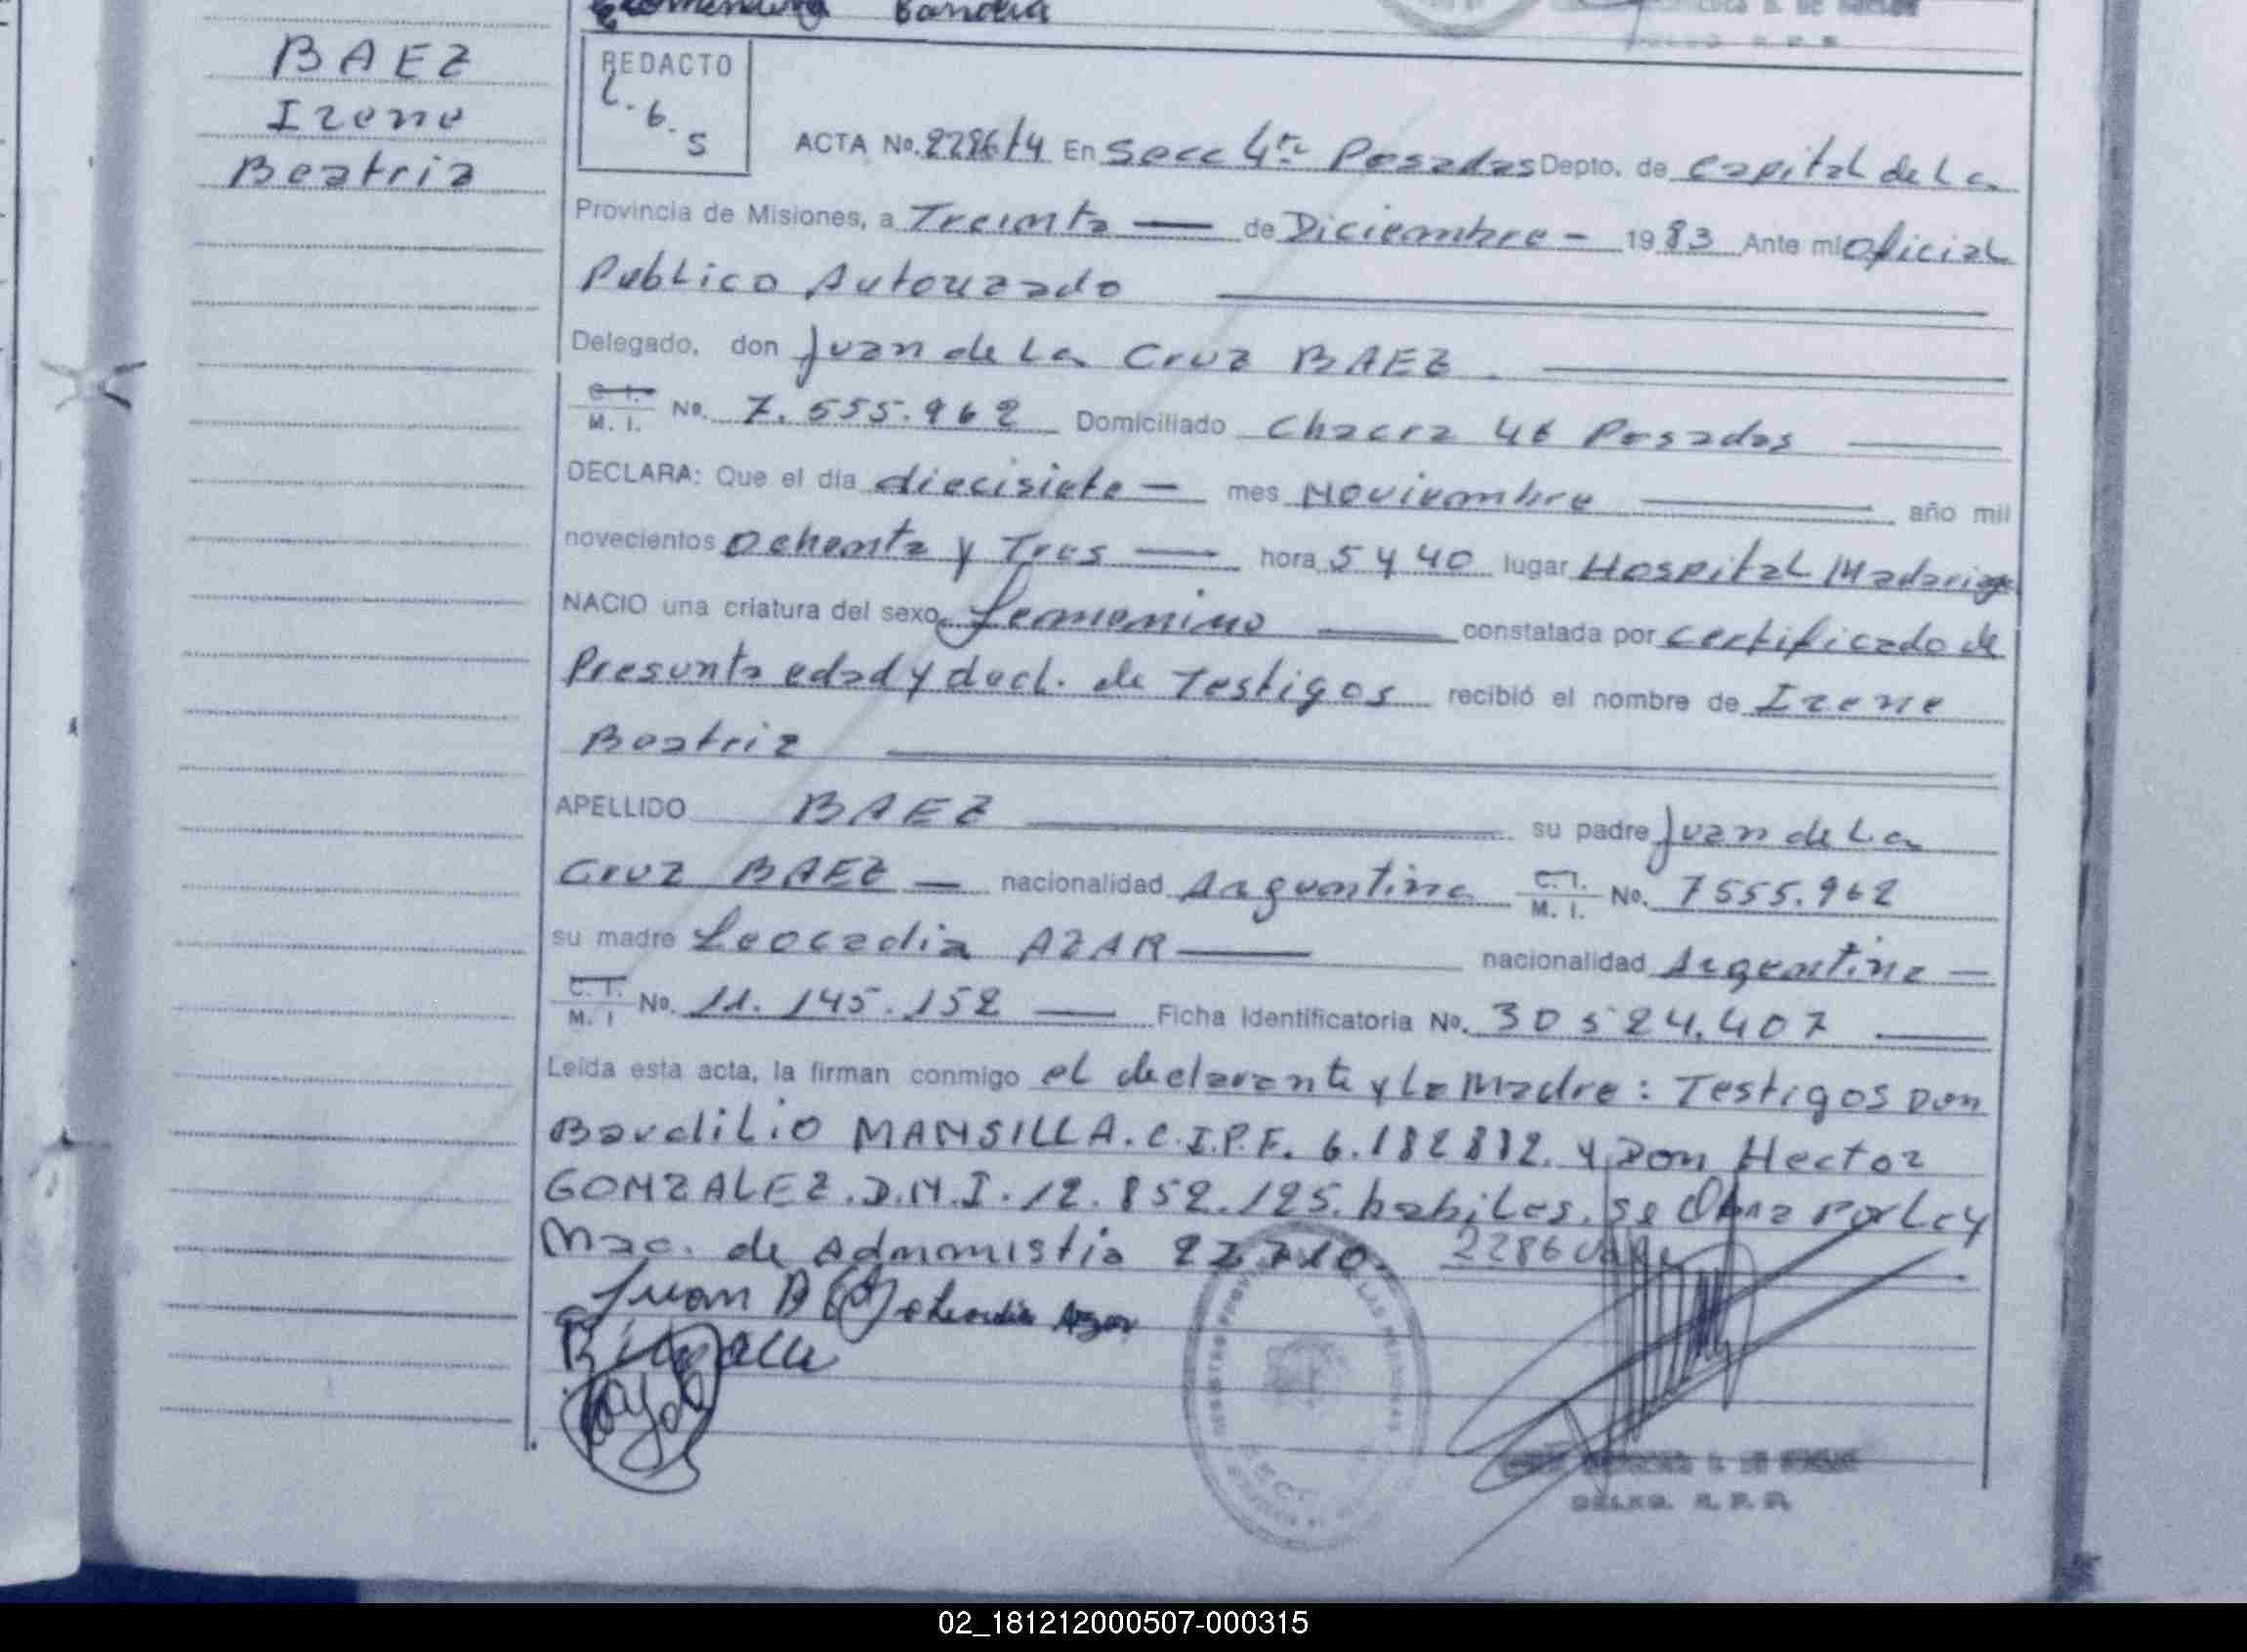 BAEZ
Irene
Beatriz
REDACTO
L. b. S
ACTA No. 2286/4 En Secc 4ta Posadas Depto. de Capital de La
Provincia de Misiones, a Treinta — de Diciembre - 1983 Ante mi Oficial
Publico Autorizado
Delegado, don Juan de La Cruz BAEZ.
C. I. M. I. No. 7.555.962 Domiciliado Chacra 46 Posadas
DECLARA: Que el día diecisiete — mes Noviembre — año mil
novecientos Ochenta y Tres — hora 5 y 40 lugar Hospital Madariaga
NACIO una criatura del sexo femenino — constatada por certificado de
Presunta edad y decl. de Testigos recibió el nombre de Irene
Beatriz
APELLIDO BAEZ — su padre Juan de La
Cruz BAEZ — nacionalidad Argentina C. I. M. I. No. 7555.962
su madre Leocadia AZAR — nacionalidad Argentina —
C. I. M. I No. 11.145.152 — Ficha Identificatoria No. 30524.407 —
Leída esta acta, la firman conmigo el declarante y La Madre: Testigos Don
Baudilio MANSILLA. C.I.P.F. 6.182812. y Don Hector
GONZALEZ. D.N.I. 12.852.125. habiles. se Obra por Ley
Nac. de Admonistia 22.710. 2286 vale
Juan B
Leocadia Azar
DELEG. R. P. P.
02_181212000507-000315